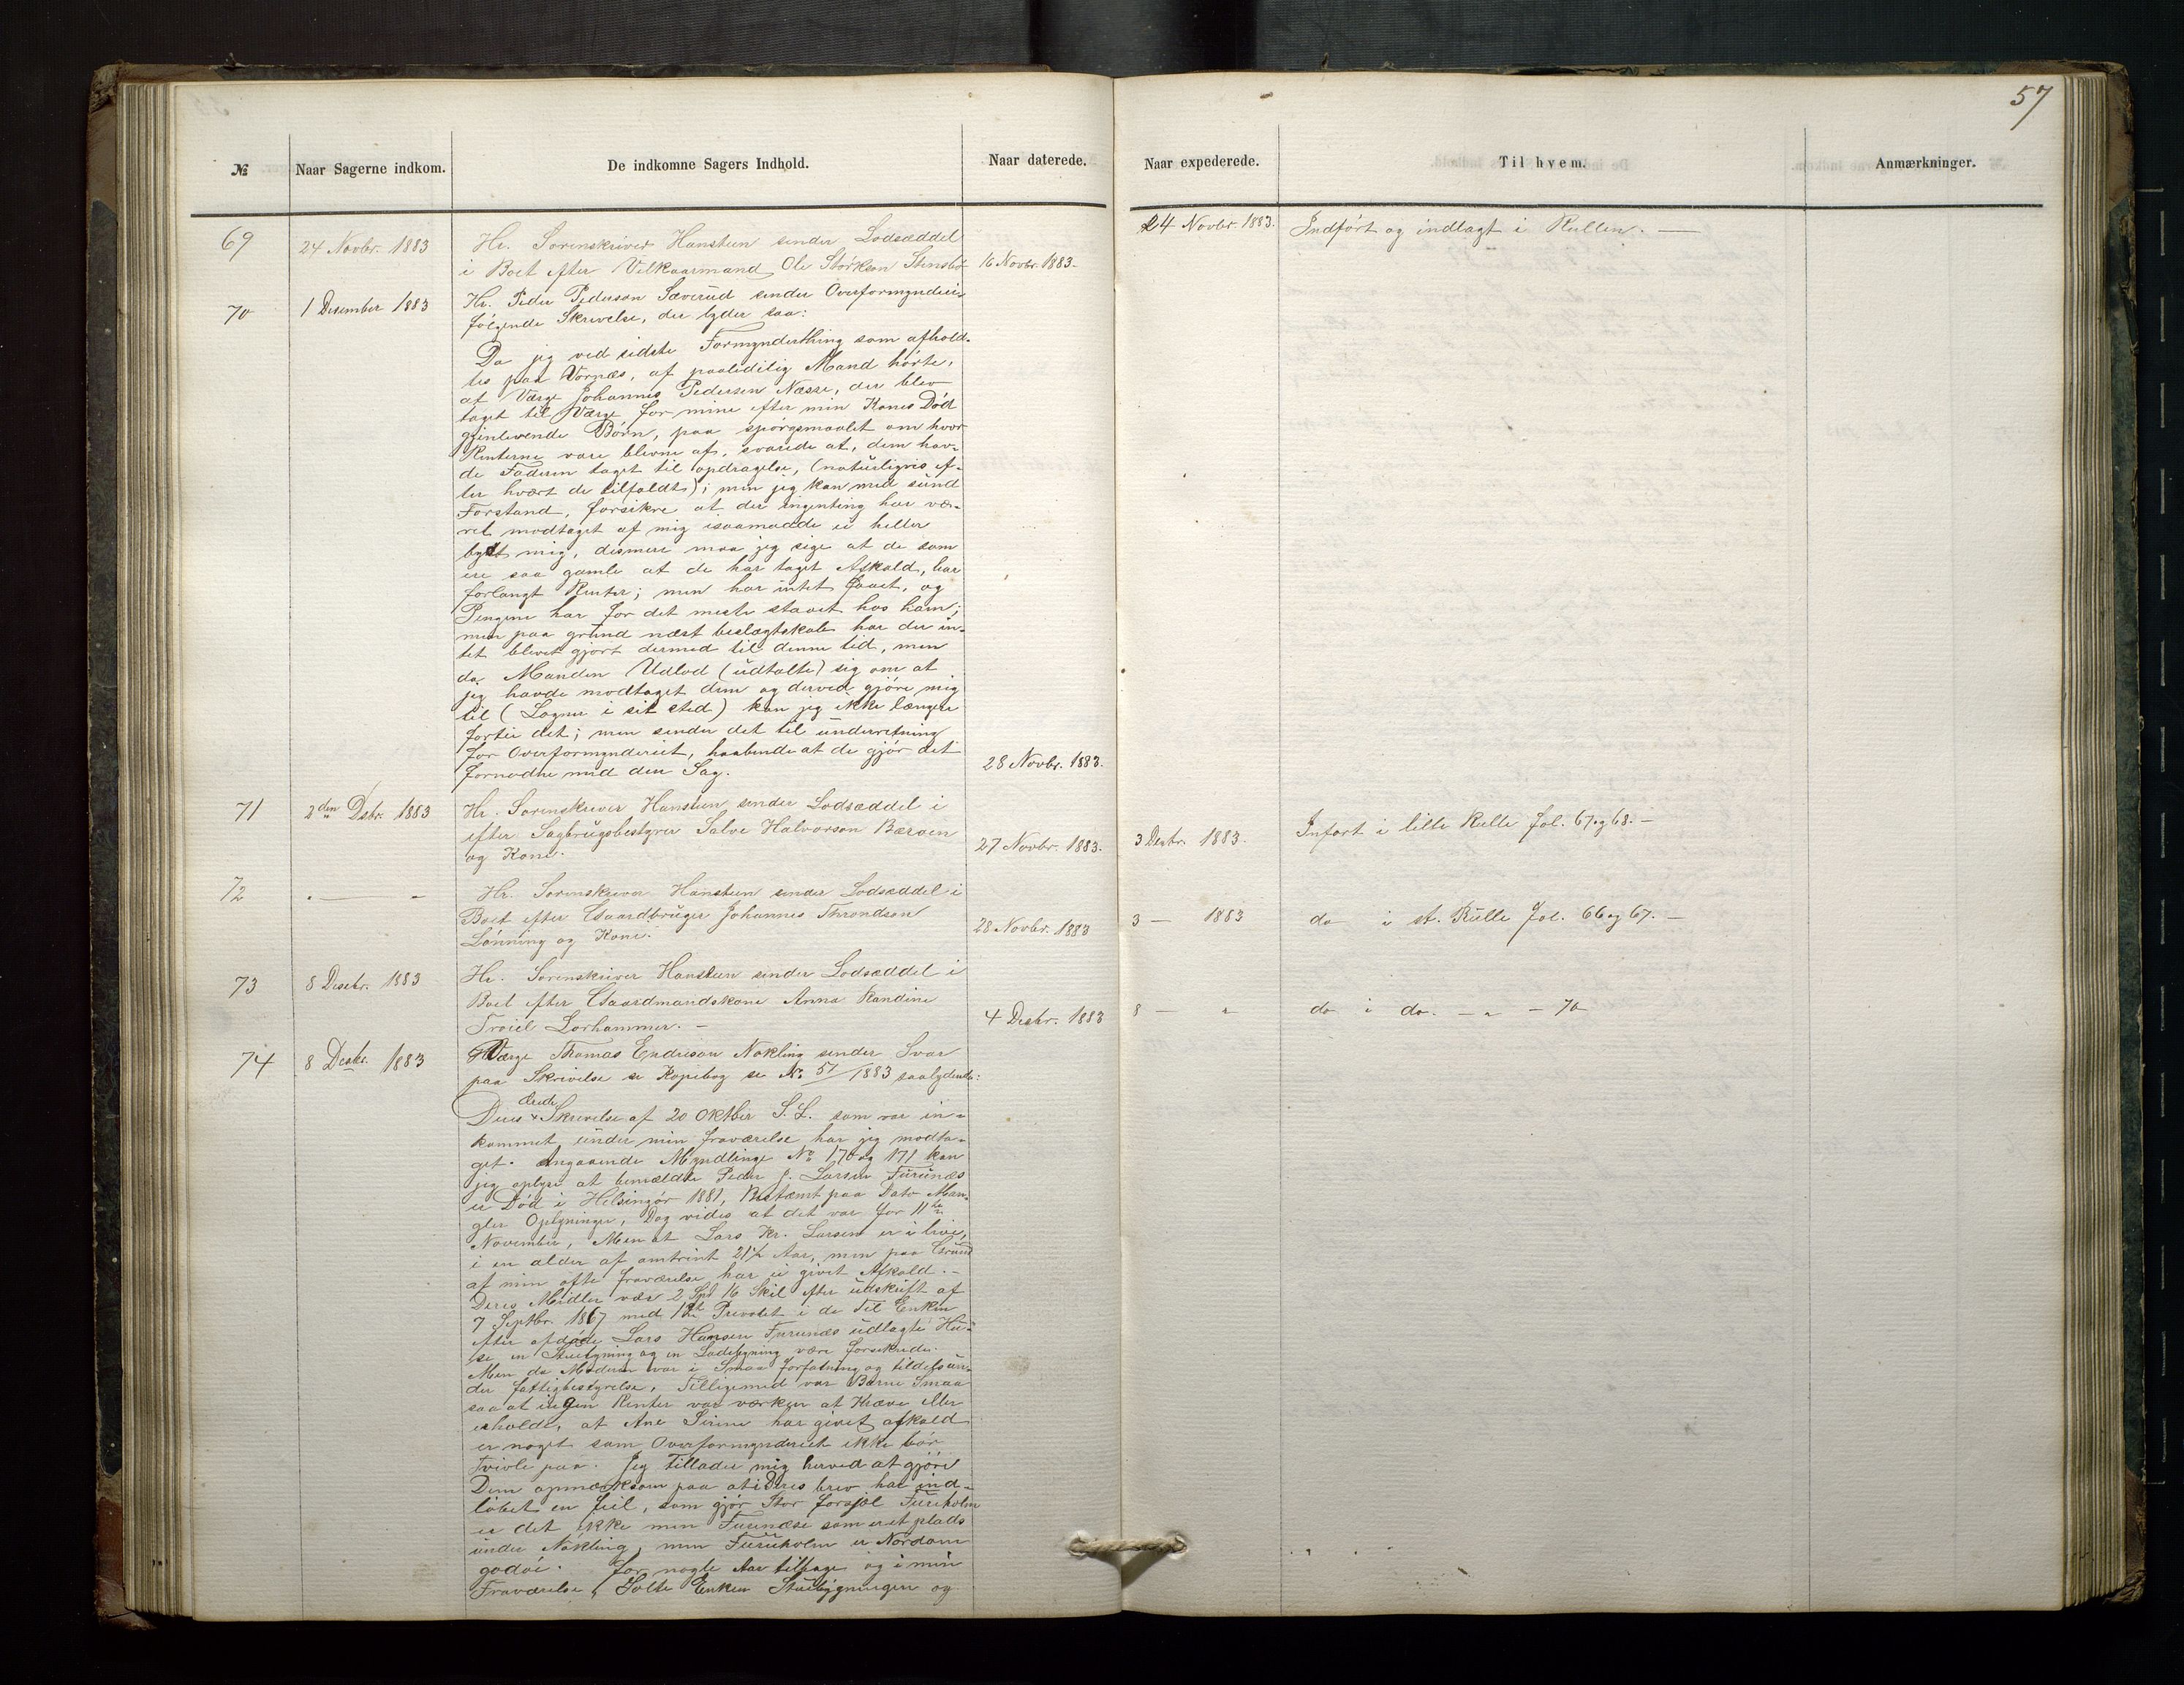 57
№ Naar Sagerne indkom. De indkomne Sagers Indhold. Naar daterede. Naar expederede. Til hvem. Anmærkninger.
69 24 Novbr. 1883 Hr. Sorenskriver Hansteen sender Lodseddel
i Boet efter Vilkaarmand Ole Störkson Stensbö 16 Novbr. 1883. 24 Novbr. 1883. Indført og indlagt i Rullen. —
70 1 Desember 1883 Hr. Peder Pederson Sæverud sender Overformynderi
følgende Skrivelse, der lyder saa:
Da jeg ved sidste Formynderthing som afhold-
tes paa Vornæs, af paalidilig Mand hørte,
at Værge Johannes Pedersen Næsse, der blev
taget til Værge for mine efter min Kones Död
gjenlevende Börn, paa spörgsmaalet om hvor
Renterne vare blevne af, svarede at, dem hav-
de Faderen taget til opdragelse, (naturligvis ef-
ter hvært de tilfaldt); men jeg kan med sund
Forstand, forsikre at der ingenting har væ-
ret modtaget af mig isaamaade ei heller
bydt mig, desmere maa jeg sige at de som
ere saa gamle at de har taget Afkald, har
forlangt Renter; men har intet faaet, og
Pengene har for det meste staaet hos ham;
men paa grund næst beslægtskab har der in-
tet blevet gjort dermed til denne tid, men
da Manden Udlod (udtalte) sig om at
jeg havde modtaget dem og derved gjöre mig
til (Lögner i sit sted) kan jeg ikke længere
fortie det; men sender det til underretning
for Overformynderiet, haabende at de gjör det
fornødne med den Sag. 28 Novbr. 1883.
71 2den Desbr. 1883 Hr. Sorenskriver Hansteen sender Lodseddel i
efter Sagbrugsbestyrer Salve Halvorson Bærøen
og Kone. 27 Novbr. 1883. 3 Desbr. 1883. Infört i lille Rulle Fol. 67 og 68. —
72 " — " Hr. Sorenskriver Hansteen sender Lodseddel i
Boet efter Gaardbruger Johannes Throndson
Lönning og Kone. 28 Novbr. 1883 3 — 1883 do i st. Rulle Fol. 66 og 67. —
73 8 Desebr. 1883 Hr. Sorenskriver Hansteen sender Lodseddel i
Boet efter Gaardmandskone Anna Randine
Lorhammer. — 4 Desbr. 1883 8 — " do i do. — " — 70
74 8 Desbr. 1883 Værge Thomas Endreson Nøkling sender Svar
paa Skrivelse se Kopibog se No 57/1883 saalydende:
Deres ærede Skrivelse af 20 Oktber S.L. som var in-
kommet under min fraværelse har jeg modta-
get. Angaaende Myndlinge No 170 og 171 kan
jeg oplyse at bemældte Peder J. Larsen Furunæs
er Död i Helsingör 1881, Bestæmt paa Dato Man-
gler Oplysninger, Dog vides at det var för 11te
November, Men at Lars Kr. Larsen er i live,
i en alder af omtrint 21½ Aar, men paa Grund
af min ofte fraværelse har ei givet Afkald. —
Deres Midler vær 2 Spd 16 Skil efter udskrift af
7 Septbr. 1867 med Prioritet i de Til Enken
efter afdöde Lars Hansen Furunæs udlagte Hu-
se en Stuebygning og en Ladebygning være forsikrede.
Men da Moderen var i Smaa forfatning og tildels un-
der fattigbestyrelse, Tilligemed var Barne Smaa
saa at ingen Renter var værken at Kræve eller
erholde, at Ane Sirine har givet afkald
er noget som Overformynderiet ikke bör
tvivle paa. Jeg Tillader mig herved at gjöre
Dem opmærksom paa at i Deres brev har ind-
löbet en feil, som gjör Stor forsjel Furuholm
er det ikke men Furunæs som er et plads
under Nökling, men Furuholm er Nordom
godöi. for nogle Aar tilbage og i min
Fraværelse, Solte Enken Stuebygningen og